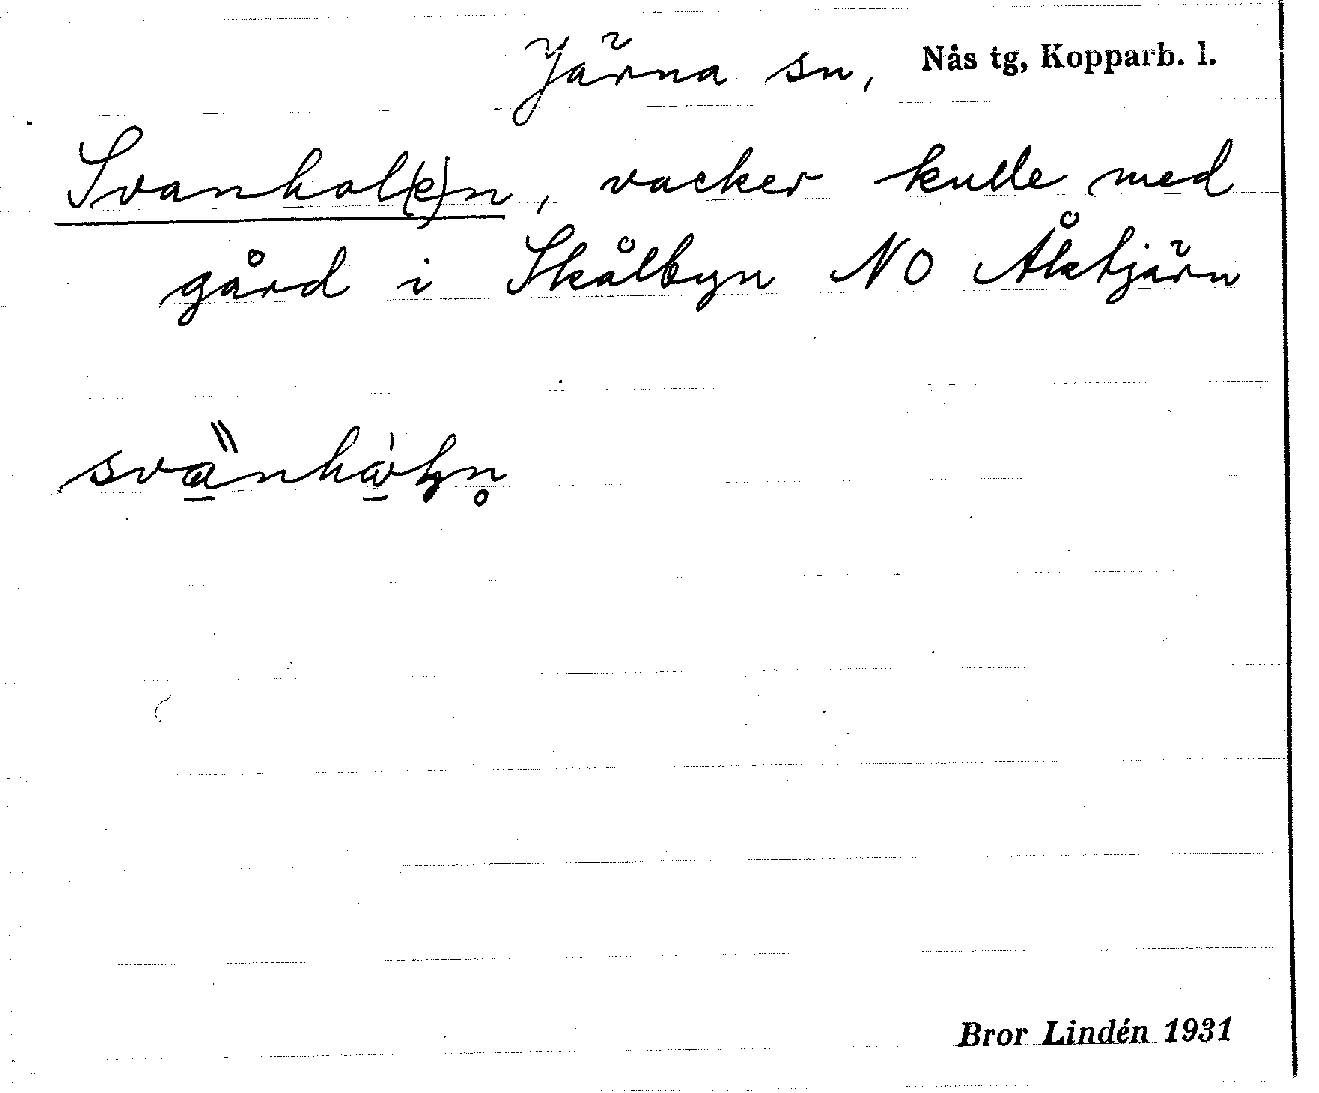 Järna sn, Nås tg, Kopparb. l.
Svanhol(e)n, vacker kulle med
gård i Skålbyn NO Åktjärn
Bror Lindén 1931